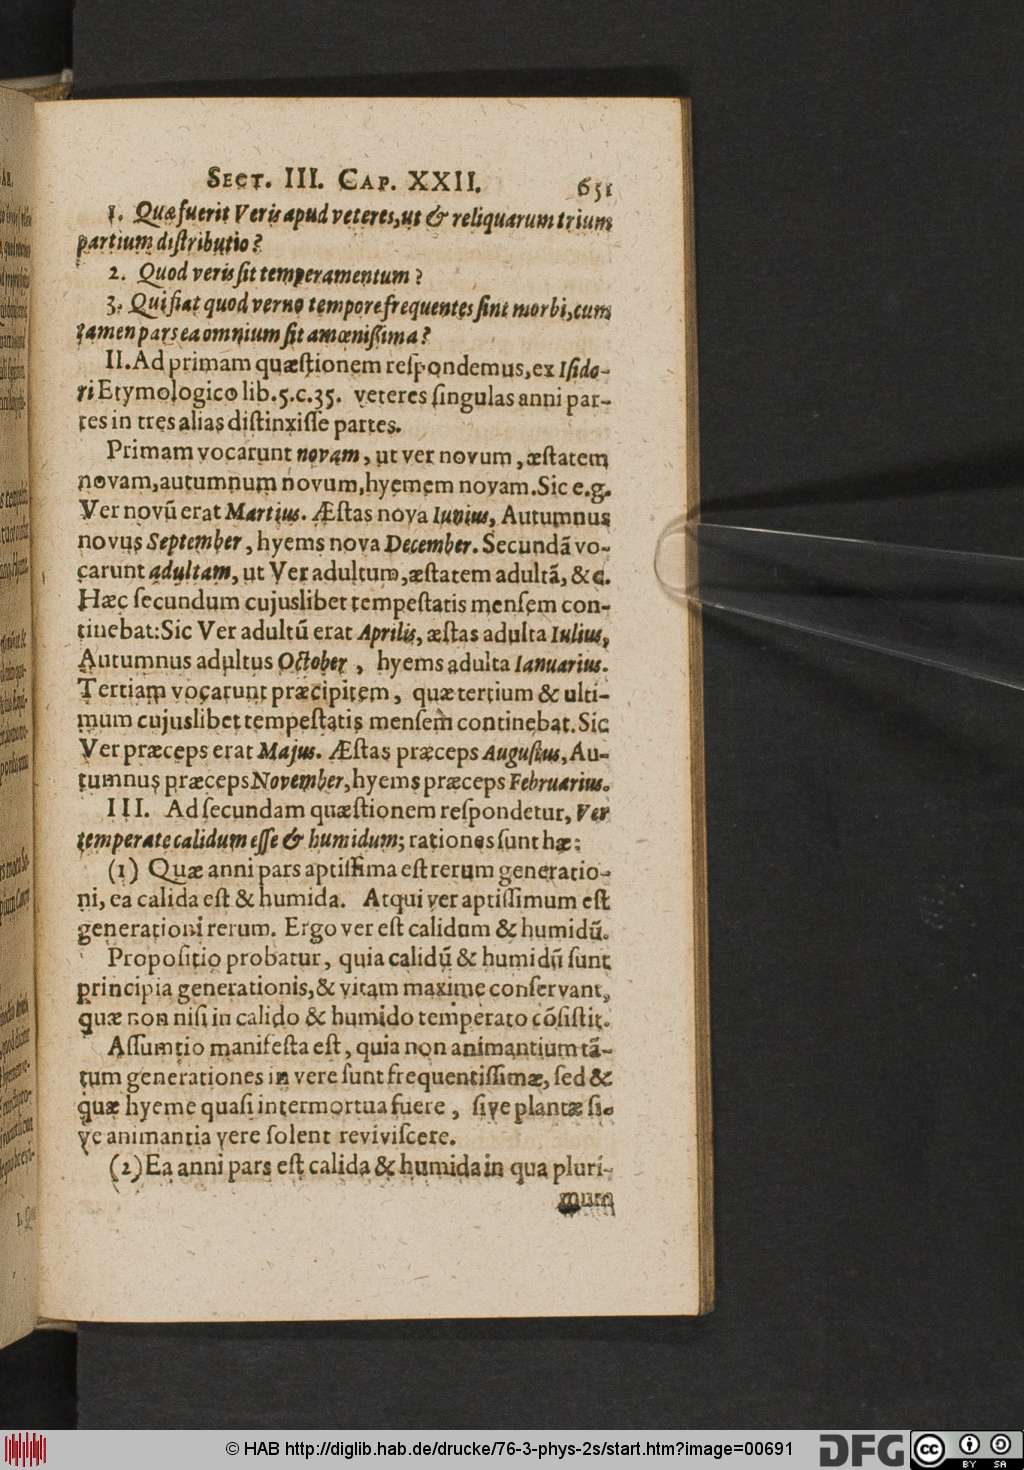 Sect. III. Cap. XXII. 651
1. Quæ fuerit Veris apud veteres, ut & reliquarum trium
partium distributio?
2. Quod veris sit temperamentum?
3. Qui fiat quod verno tempore frequentes sint morbi, cum
tamen pars ea omnium sit amœnissima?
II. Ad primam quæstionem respondemus, ex Isido-
ri Etymologico lib. 5. c. 35. veteres singulas anni par-
tes in tres alias distinxisse partes.
Primam vocarunt novam, ut ver novum, æstatem
novam, autumnum novum, hyemem novam. Sic e. g.
Ver novũ erat Martius. Æstas nova Iunius, Autumnus
novus September, hyems nova December. Secundã vo-
carunt adultam, ut Ver adultum, æstatem adultã, &c.
Hæc secundum cujuslibet tempestatis mensem con-
tinebat: Sic Ver adultũ erat Aprilis, æstas adulta Iulius,
Autumnus adultus October, hyems adulta Ianuarius.
Tertiam vocarunt præcipitem, quæ tertium & ulti-
mum cujuslibet tempestatis mensem continebat. Sic
Ver præceps erat Majus. Æstas præceps Augustus, Au-
tumnus præceps November, hyems præceps Februarius.
III. Ad secundam quæstionem respondetur, Ver
temperate calidum esse & humidum; rationes sunt hæ:
(1) Quæ anni pars aptissima est rerum generatio-
ni, ea calida est & humida. Atqui ver aptissimum est
generationi rerum. Ergo ver est calidum & humidũ.
Propositio probatur, quia calidũ & humidũ sunt
principia generationis, & vitam maxime conservant,
quæ non nisi in calido & humido temperato cõsistit.
Assumtio manifesta est, quia non animantium tã-
tum generationes in vere sunt frequentissimæ, sed &
quæ hyeme quasi intermortua fuere, sive plantæ si-
ve animantia vere solent reviviscere.
(2) Ea anni pars est calida & humida in qua pluri-
mum
© HAB http://diglib.hab.de/drucke/76-3-phys-2s/start.htm?image=00691
DFG
cc BY SA